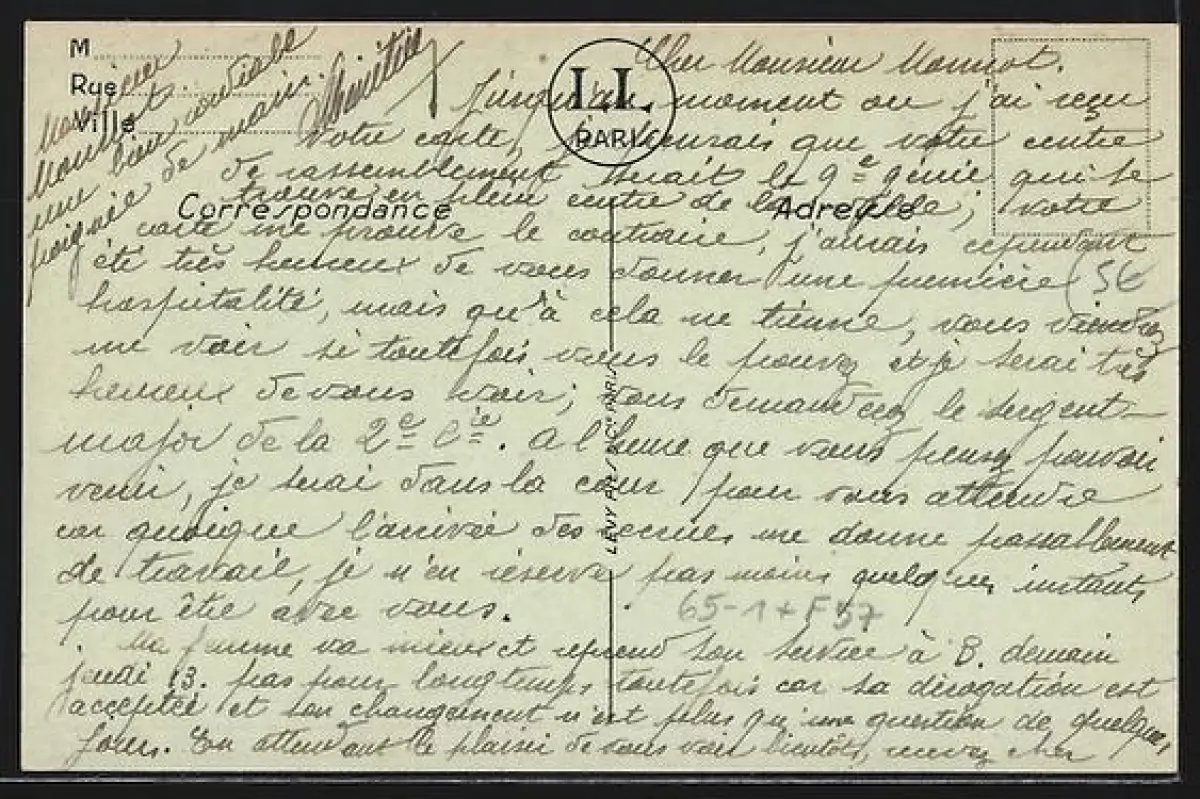 M
Rue
Ville
LL
PARIS
Correspondance
Adresse
LEVY FILS & Cie PARIS
Cher Monsieur
Jusqu'au moment où j'ai reçu
votre carte, je pensais que votre centre
de rassemblement serait le 9e génie qui se
trouve en plein centre de la ville; votre
carte me prouve le contraire, j'aurais cependant
été très heureux de vous donner une première
5€
hospitalité, mais qu'à cela ne tienne, vous viendrez
me voir si toutefois vous le pouvez et je serai très
heureux de vous voir; vous demanderez le sergent-
major de la 2e Cie. A l'heure que vous pensez pouvoir
venir, je serai dans la cour pour vous attendre
car quoique l'arrivée des recrues me donne passablement
de travail, je n'en réserve pas moins quelques instants
pour être avec vous.
65-1+F57
Ma femme va mieux et reprend son service à B. demain
jeudi 13. pas pour longtemps toutefois car sa dérogation est
acceptée et son changement n'est plus qu'une question de quelques
jours. En attendant le plaisir de vous voir bientôt, recevez cher
Monsieur
une bien cordiale
poignée de main.